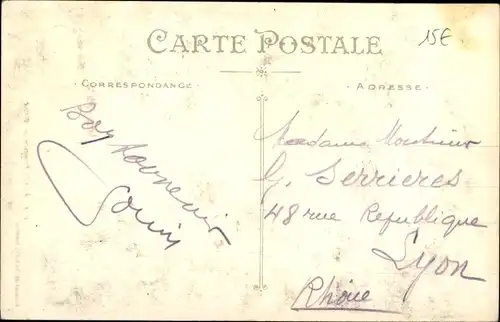 CARTE POSTALE
15€
CORRESPONDANCE
ADRESSE
Bon souvenir
Madame Monsieur
G. Serrieres
48 rue Republique
Lyon
Rhône